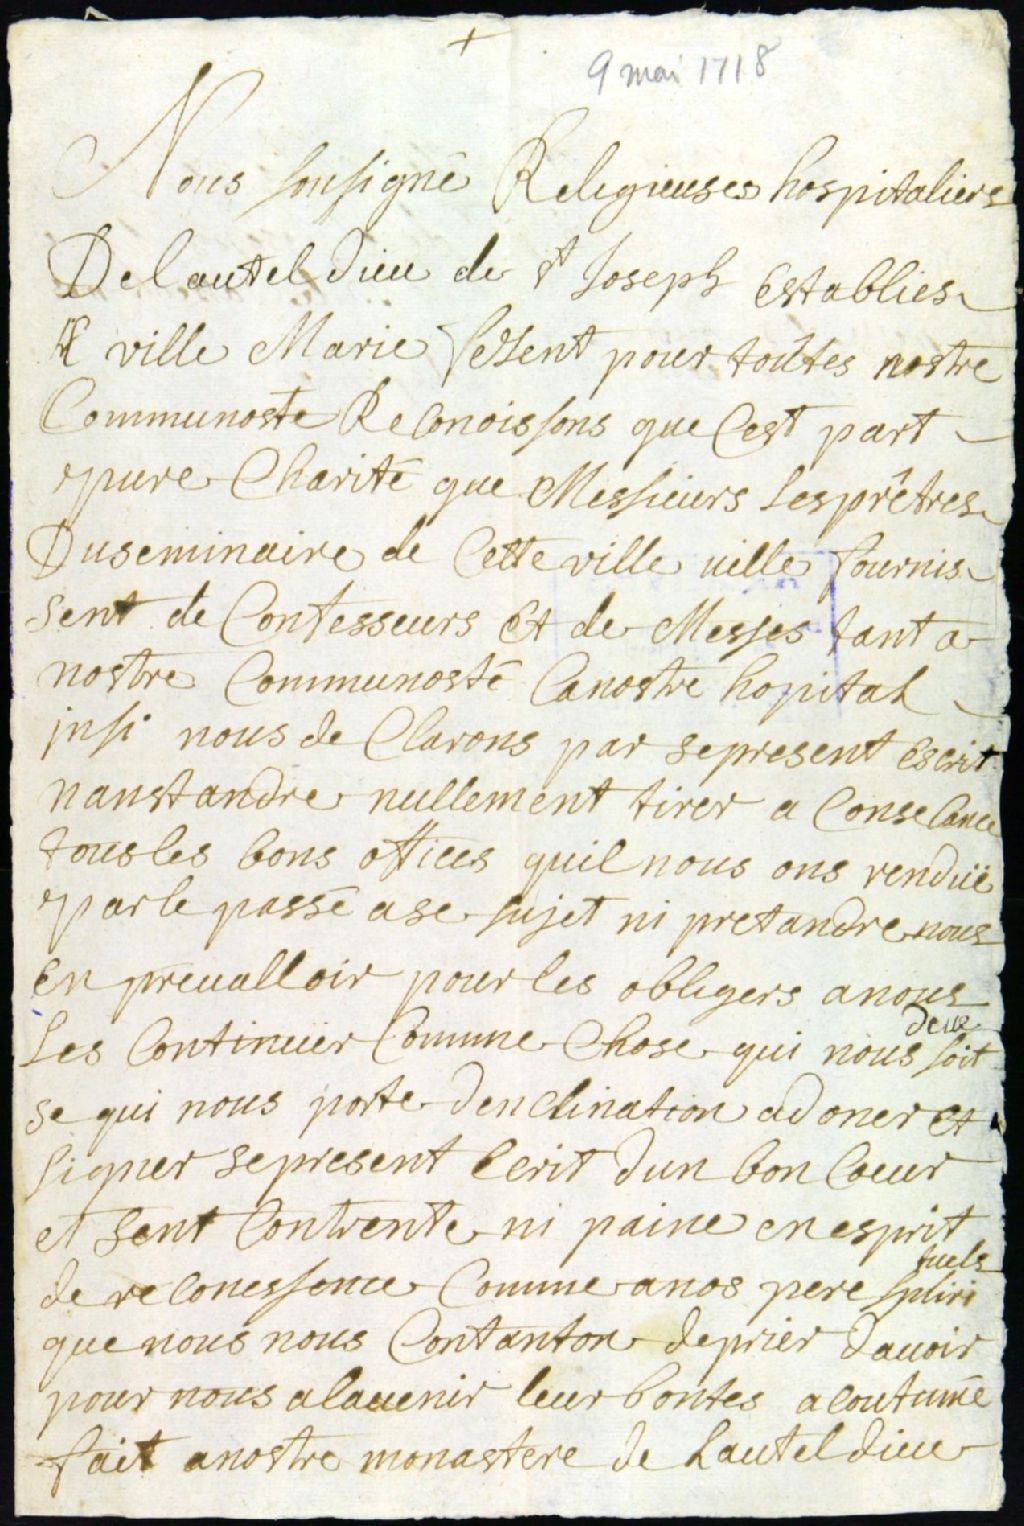 +
9 mai 1718
Nous sousignê Religieuses hospitaliere
De lautel dieu de st Joseph establies
ville Marie pour toutes nostre
Communoste Reconoissons que Cest part
pure Charité que Messieurs Les prêtres
Du seminaire de Cette ville uille fournis
sent de Confesseurs Et de Messes tant a
nostre Communosté Canostre hopital
insi nous de Clarons par se present escrit
nanstandre nullement tirer a Conse Cance
tous les bons offices quil nous ons renduë
par le passé a se sujet ni pretandre nous
en preualloir pour les obligers a nous
Les Continuer Comme Chose qui nous deue soit
se qui nous porte denclination a doner et
signer se present Ecrit dun bon Coeur
et sent Contrente ni paine en esprit
de reconessence Comme a nos pere spirituels
que nous nous Contanton de prier dauoir
pour nous a lauenir leur bontes a coutumé
fait a nostre monastere de Lautel dieu